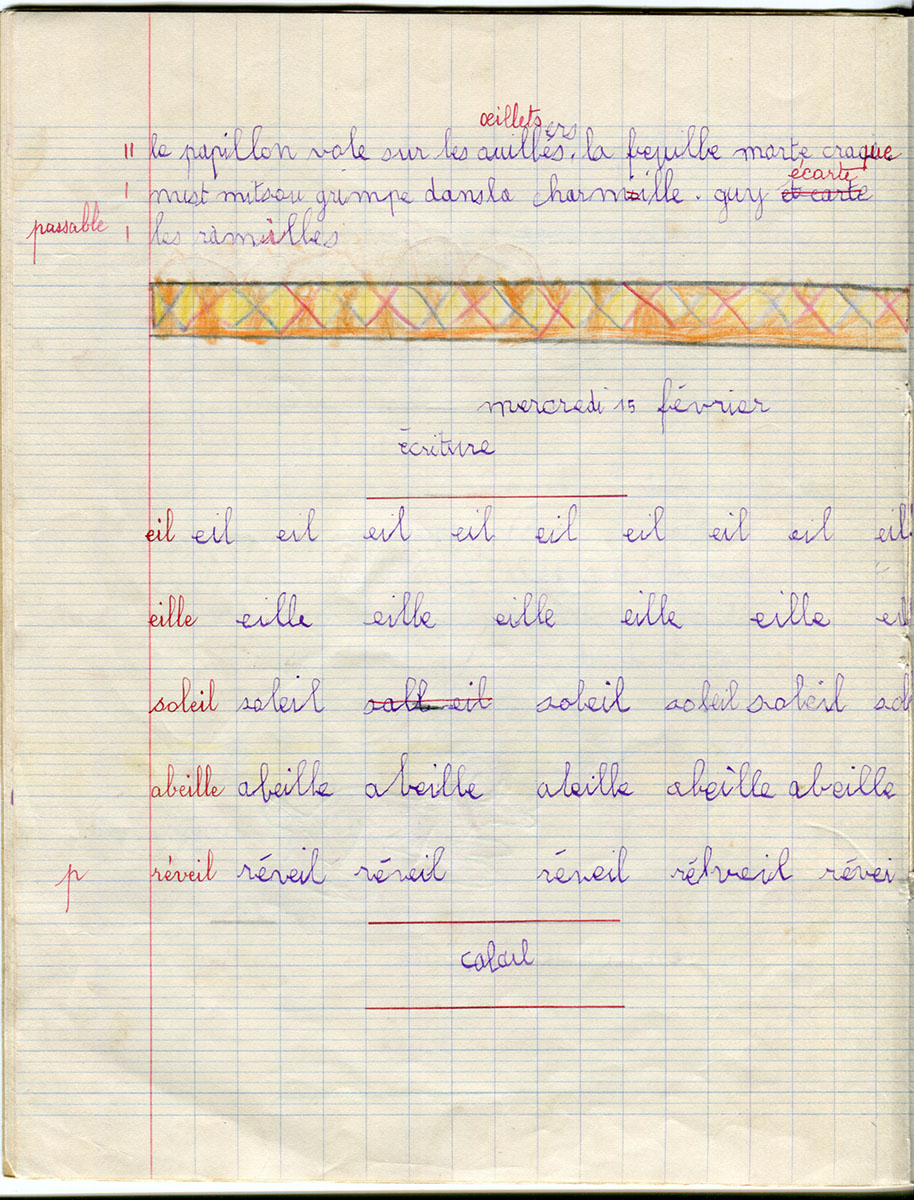 œillets
le papillon vole sur les auillés ers. la feuille morte craque
écarte
mist mitsou grimpe dansla charmille. guy et carte
passable les ramilles
mercredi 15 février
écriture
eil eil eil eil eil eil eil eil eil eil
eille eille eille eille eille eille eil
soleil soleil sall eil soleil soleil soleil sol
abeille abeille abeille abeille abeille abeille
p réveil réveil réveil réveil rélveil révei
calcul